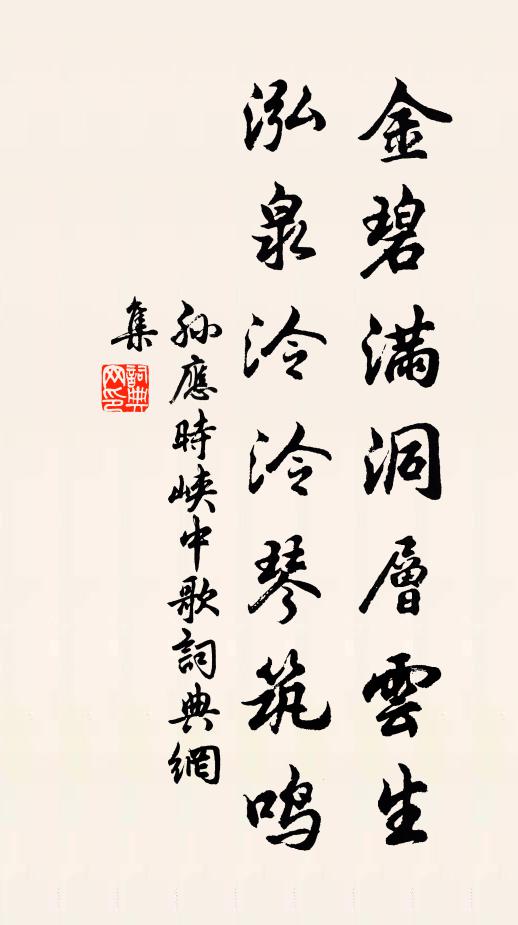 金碧滿洞層雲生
泓泉泠泠琴筑鸣
孙應時峽中歌詞典網
集
詞典
网印